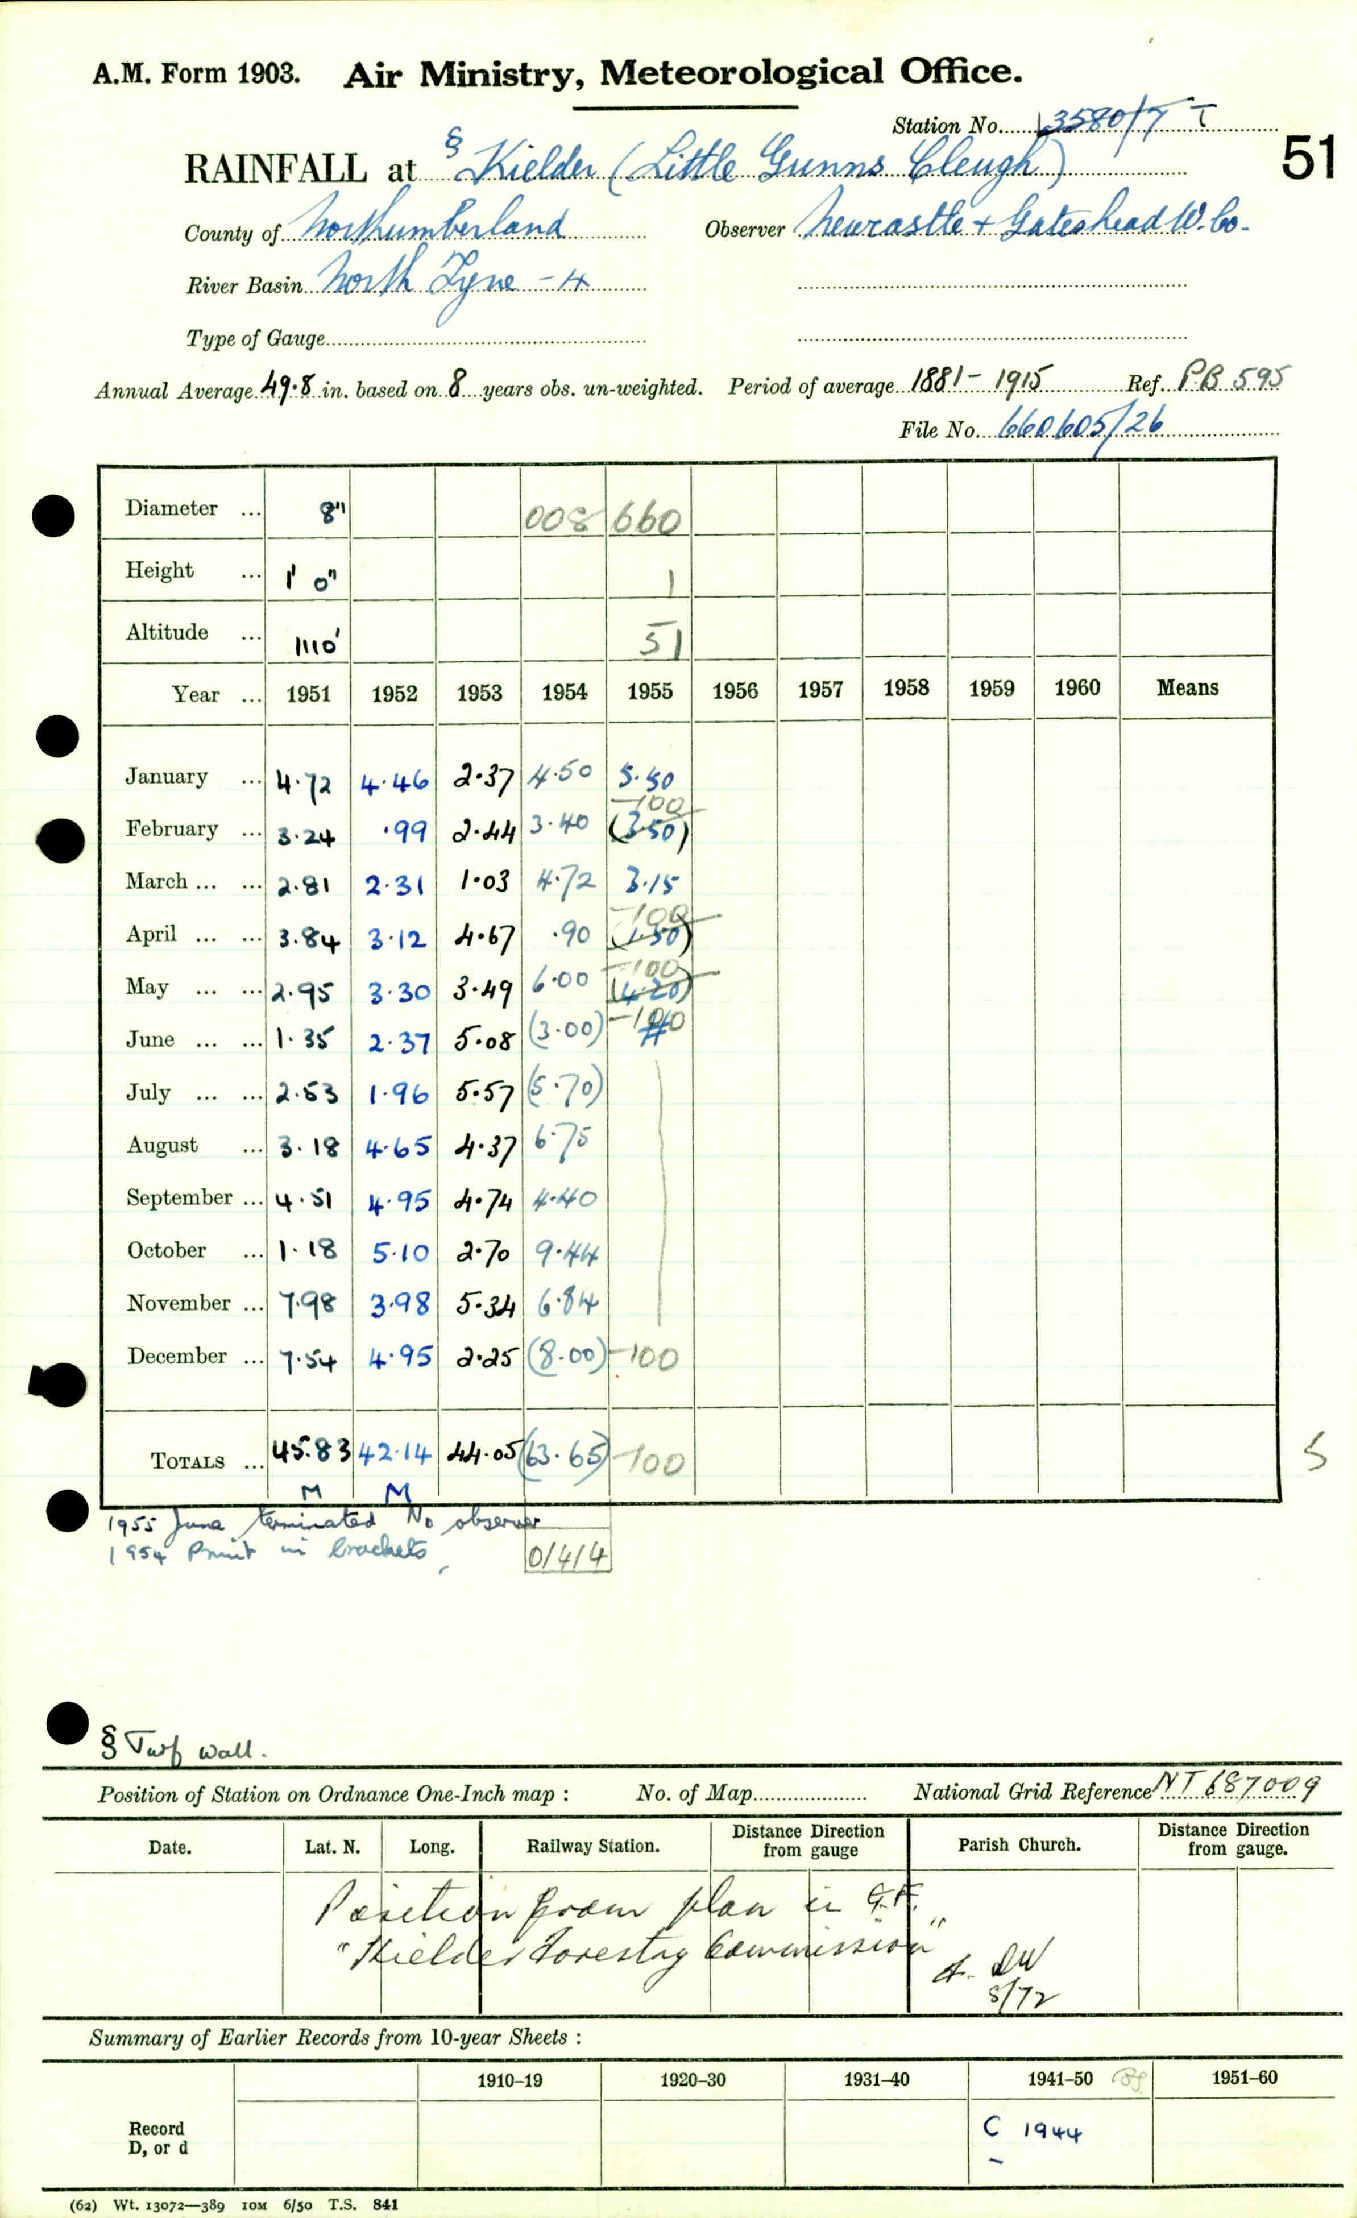 A.M. Form 1903. Air Ministry, Meteorological Office.
Station No. 13580/7 T
51
RAINFALL at § Kielder (Little Gunns Cleugh)
County of Northumberland Observer Newcastle + Gateshead W. Co.
River Basin North Tyne - 4
Type of Gauge
Annual Average 49.8 in. based on 8 years obs. un-weighted. Period of average 1881 - 1915 Ref. PB 595
File No. 660605/26
Diameter ... 8" 008 660
Height ... 1' 0" 1
Altitude ... 1110' 51
Year ... 1951 1952 1953 1954 1955 1956 1957 1958 1959 1960 Means
January ... 4.72 4.46 2.37 4.50 5.50
-100
February ... 3.24 .99 2.44 3.40 (3.50)
March ... ... 2.81 2.31 1.03 4.72 3.15
-100
April ... ... 3.84 3.12 4.67 .90 (1.50)
-100
May ... ... 2.95 3.30 3.49 6.00 (4.20)
June ... ... 1.35 2.37 5.08 (3.00) -100 #
July ... ... 2.53 1.96 5.57 (5.70)
August ... 3.18 4.65 4.37 6.75
September ... 4.51 4.95 4.74 4.40
October ... 1.18 5.10 2.70 9.44
November ... 7.98 3.98 5.34 6.84
December ... 7.54 4.95 2.25 (8.00) -100
TOTALS ... 45.83 42.14 44.05 (63.65) -100
S
M M
1955 June terminated No observer
1954 Print in brackets
0/4/4
§ Turf wall.
Position of Station on Ordnance One-Inch map : No. of Map National Grid Reference NT 687009
Date. Lat. N. Long. Railway Station. Distance Direction from gauge Parish Church. Distance Direction from gauge.
Position from plan in G.F.
"Kielder Forestry Commission"
DW
8/72
Summary of Earlier Records from 10-year Sheets :
1910–19 1920–30 1931–40 1941–50 1951–60
Record
D, or d
C 1944
(62) Wt. 13072—389 10M 6/50 T.S. 841